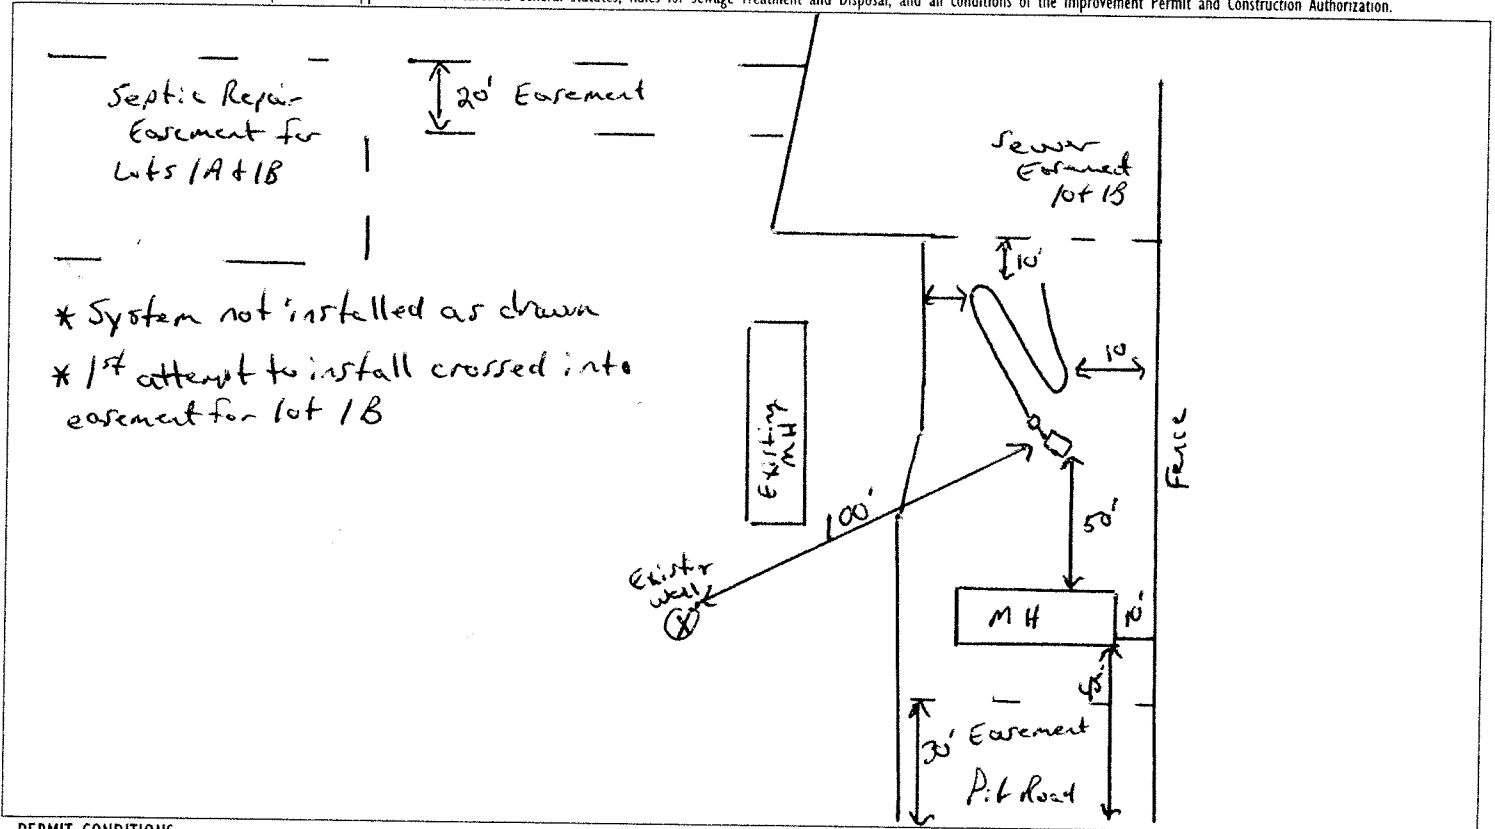 Rules for Sewage Treatment and Disposal, and all conditions of the Improvement Permit and Construction Authorization.
Septic Repair
Easement for
Lots 1A + 1B
20' Easement
Sewer
Easement
lot 1B
10'
* System not installed as drawn
* 1st attempt to install crossed into
easement for lot 1B
10
Existing
MH
Fence
100'
50'
Existing
well
X
MH
30' Easement
Pit Road
PERMIT CONDITIONS